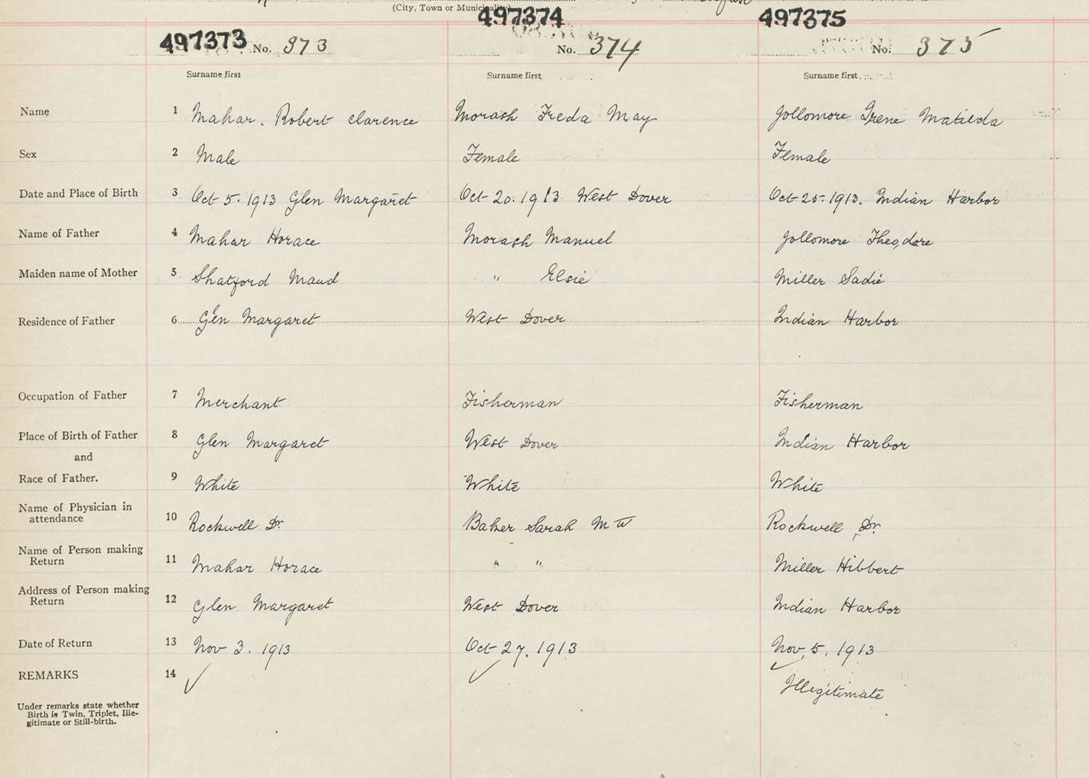 (City, Town or Municipality)
497373 No. 373
497374 No. 374
497375 No. 375
Surname first Surname first Surname first
Name 1 Mahar. Robert Clarence Morash Freda May Jollomore Irene Matilda
Sex 2 Male Female Female
Date and Place of Birth 3 Oct 5. 1913 Glen Margaret Oct 20. 1913 West Dover Oct 25. 1913. Indian Harbor
Name of Father 4 Mahar Horace Morash Manuel Jollomore Theodore
Maiden name of Mother 5 Shatford Maud " Elsie Miller Sadie
Residence of Father 6 Glen Margaret West Dover Indian Harbor
Occupation of Father 7 Merchant Fisherman Fisherman
Place of Birth of Father 8 Glen Margaret West Dover Indian Harbor
and
Race of Father. 9 White White White
Name of Physician in
attendance 10 Rockwell Dr Baker Sarah M W Rockwell Dr.
Name of Person making
Return 11 Mahar Horace " " Miller Hibbert
Address of Person making
Return 12 Glen Margaret West Dover Indian Harbor
Date of Return 13 Nov 3. 1913 Oct 27. 1913 Nov 5. 1913
REMARKS 14 ✓ ✓ ✓
Illegitimate
Under remarks state whether
Birth is Twin, Triplet, Ille-
gitimate or Still-birth.